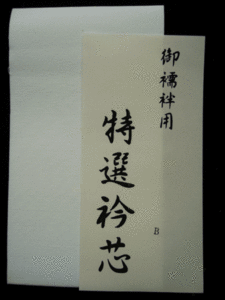 御襦袢用
特選衿芯
B